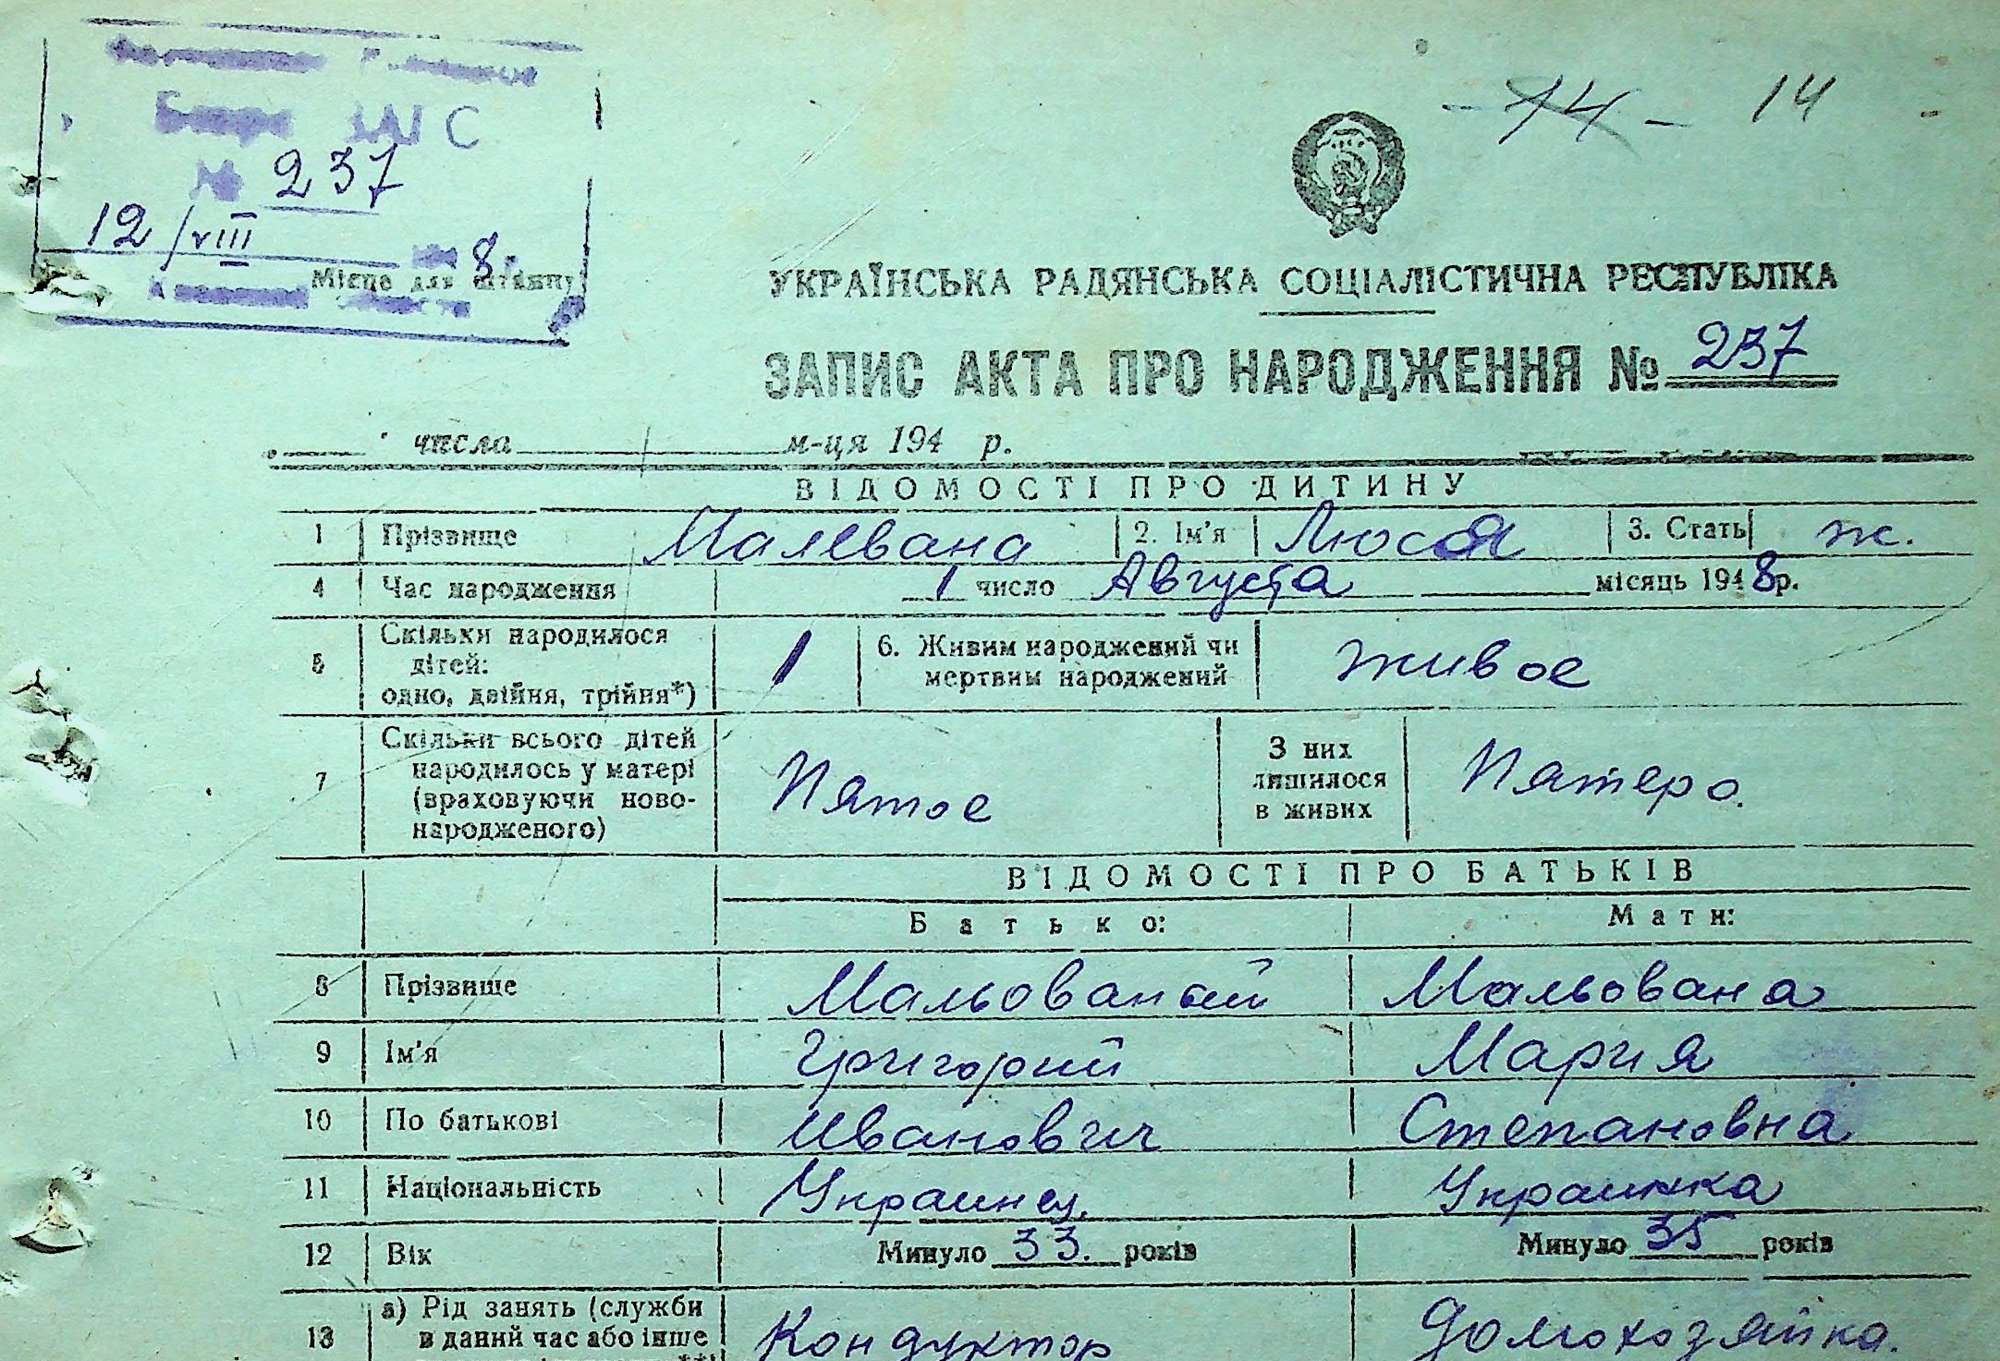 Бюро ЗАГС
№ 237
12/VIII 8.
Місце для штампу
14 14
УКРАЇНСЬКА РАДЯНСЬКА СОЦІАЛІСТИЧНА РЕСПУБЛІКА
ЗАПИС АКТА ПРО НАРОДЖЕННЯ № 237
числа м-ця 194 р.
ВІДОМОСТІ ПРО ДИТИНУ
1 Прізвище Малевана 2. Ім'я Люся 3. Стать ж.
4 Час народження 1 число Августа місяць 1948 р.
5 Скільки народилося дітей: одно, двійня, трійня*) 1 6. Живим народжений чи мертвим народжений живое
7 Скільки всього дітей народилось у матері (враховуючи ново-народженого) Пятое З них лишилося в живих Пятеро.
ВІДОМОСТІ ПРО БАТЬКІВ
Батько: Мати:
8 Прізвище Мальований Мальована
9 Ім'я Григорий Мария
10 По батькові Иванович Степановна
11 Національність Украинец Украинка
12 Вік Минуло 33. років Минуло 35 років
13 а) Рід занять (служби в даний час або інше Кондуктор Домохозяйка.